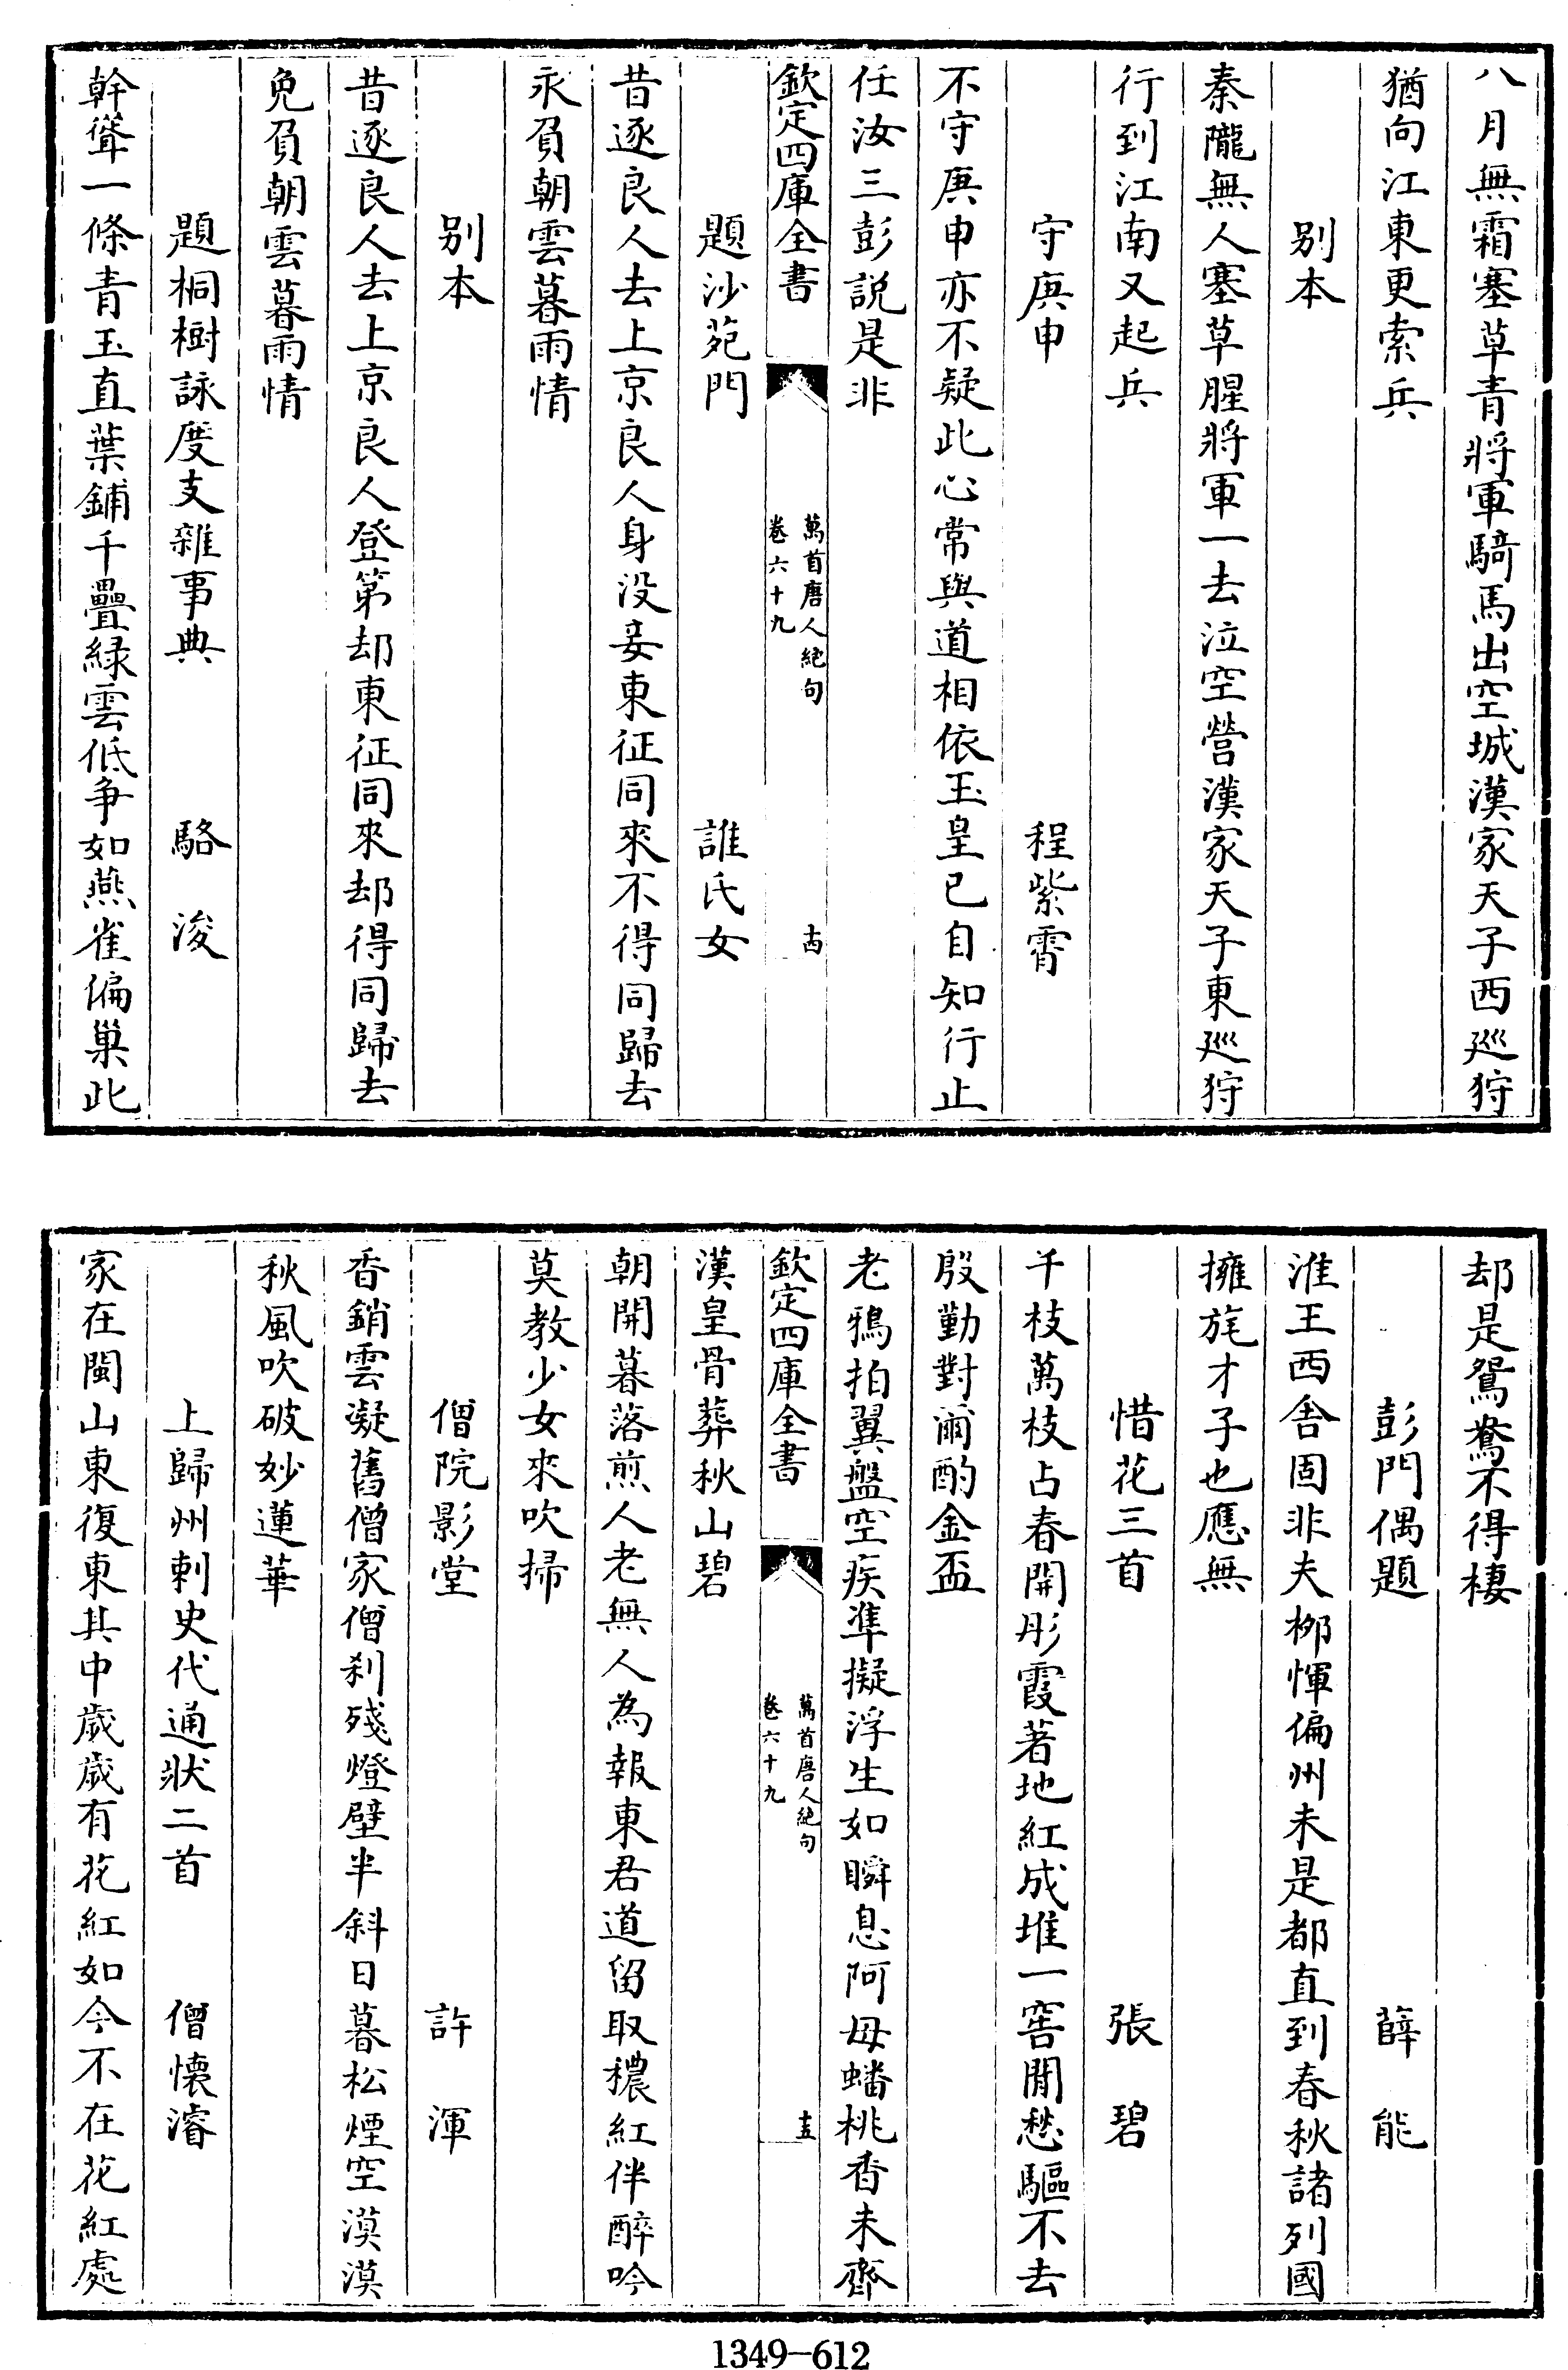 八月無霜塞草青將軍騎馬出空城漢家天子西廵狩
猶向江東更索兵
别本
秦隴無人塞草腥將軍一去泣空營漢家天子東廵狩
行到江南又起兵
守庚申　程紫霄
不守庚申亦不疑此心常與道相依玉皇已自知行止
任汝三彭説是非
欽定四庫全書　萬首唐人絶句　卷六十九　十四
題沙苑門　誰氏女
昔逐良人去上京良人身没妾東征同來不得同歸去
永負朝雲暮雨情
别本
昔逐良人去上京良人登第却東征同來却得同歸去
免負朝雲暮雨情
題桐樹詠度支雜事典　駱浚
幹聳一條青玉直葉鋪千疊緑雲低爭如燕雀偏巢此
却是鴛鴦不得棲
彭門偶題　薛能
淮王西舍固非夫栁惲偏州未是都直到春秋諸列國
擁旄才子也應無
惜花三首　張碧
千枝萬枝占春開彤霞著地紅成堆一窖閒愁驅不去
殷勤對爾酌金盃
老鴉拍翼盤空疾凖擬浮生如瞬息阿母蟠桃香未齊
欽定四庫全書　萬首唐人絶句　卷六十九　十五
漢皇骨葬秋山碧
朝開暮落煎人老無人為報東君道留取穠紅伴醉吟
莫教少女來吹掃
僧院影堂　許渾
香銷雲凝舊僧家僧刹殘燈壁半斜日暮松煙空漠漠
秋風吹破妙蓮華
上歸州刺史代通狀二首　僧懷濬
家在閩山東復東其中歲歲有花紅如今不在花紅處
1349-612